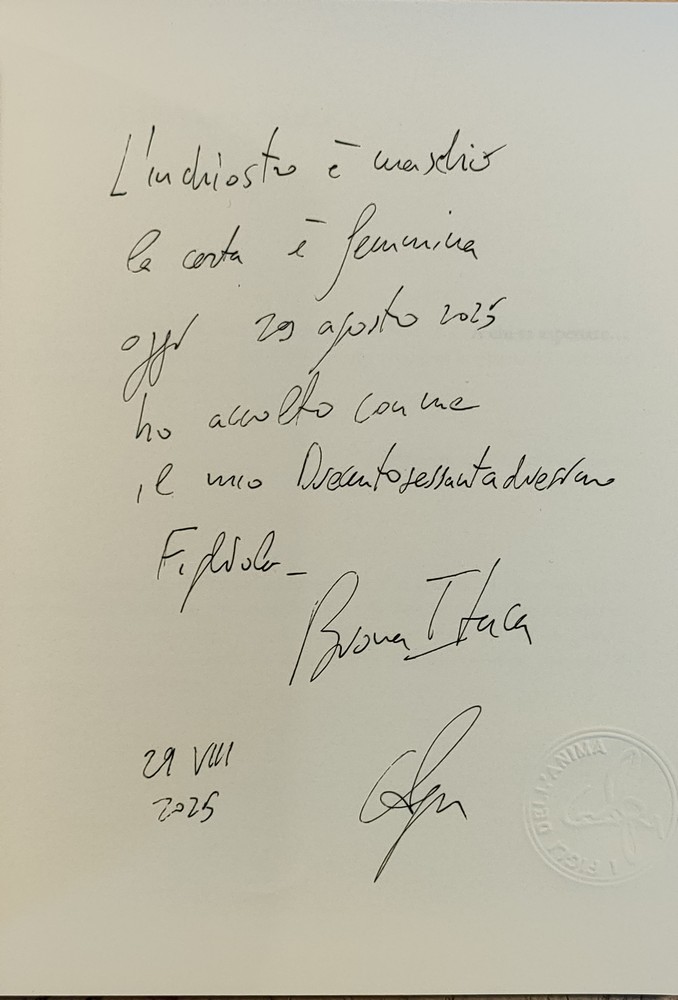 L'inchiostro è maschio
la carta è femmina
oggi 29 agosto 2025
ho accolto con me
il mio Duecentosessantaduesimo
Figliolo_
Buona Itaca
29 VIII
2025
I FIGLI DELL'ANIMA